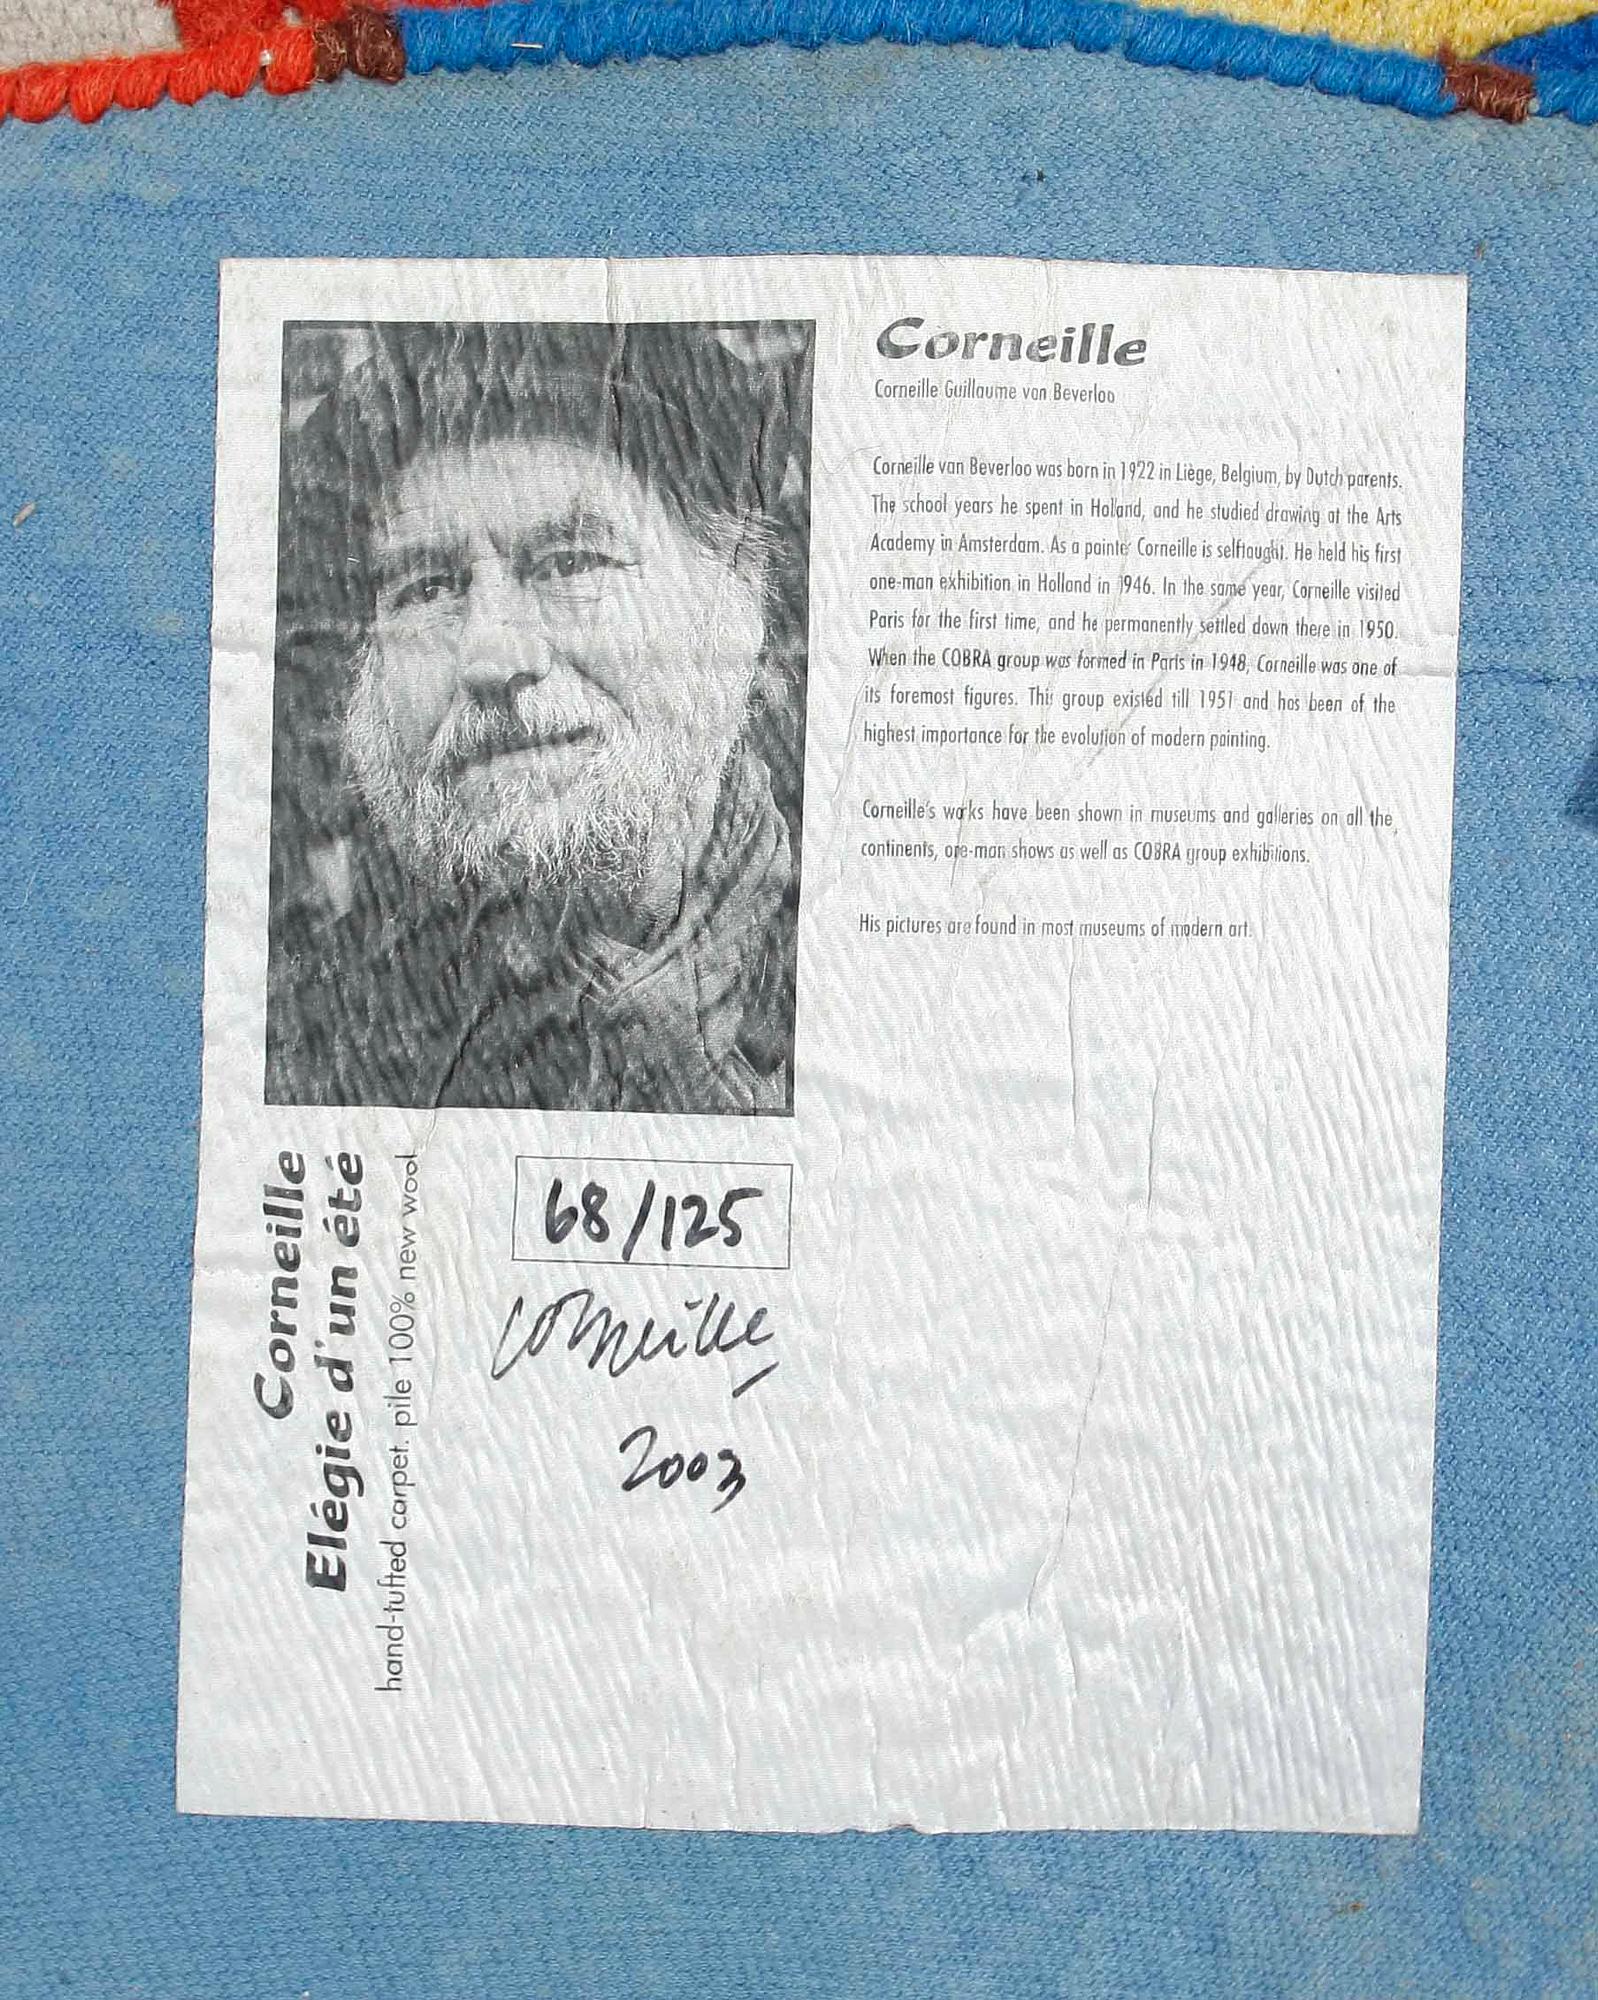 Corneille
Corneille Guillaume van Beverloo
Corneille van Beverloo was born in 1922 in Liège, Belgium, by Dutch parents.
The school years he spent in Holland, and he studied drawing at the Arts
Academy in Amsterdam. As a painter Corneille is selftaught. He held his first
one-man exhibition in Holland in 1946. In the same year, Corneille visited
Paris for the first time, and he permanently settled down there in 1950.
When the COBRA group was formed in Paris in 1948, Corneille was one of
its foremost figures. This group existed till 1951 and has been of the
highest importance for the evolution of modern painting.
Corneille's works have been shown in museums and galleries on all the
continents, one-man shows as well as COBRA group exhibitions.
His pictures are found in most museums of modern art.
Corneille
Elégie d'un été
hand-tufted carpet. pile 100% new wool
68/125
Corneille
2003